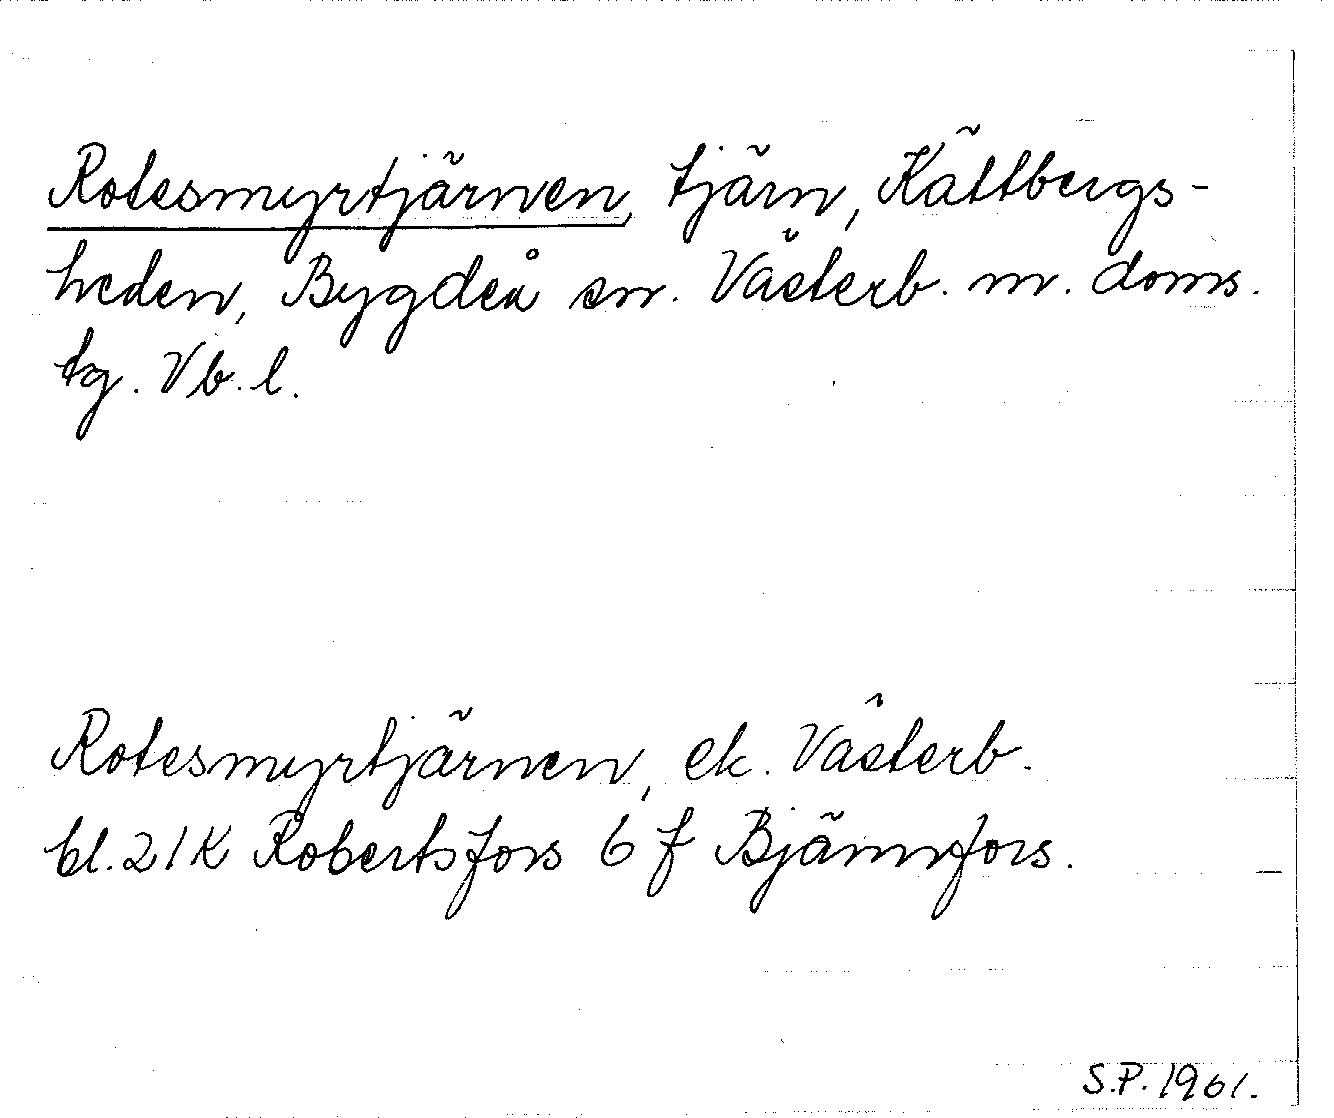 Rotesmyrtjärnen, tjärn, Kättbergs-
heden, Bygdeå sn. Västerb. m. doms.
tg. Vb. l.
Rotesmyrtjärnen, ek. Västerb.
bl. 21K Robertsfors 6 f Bjännfors.
S.P. 1961.